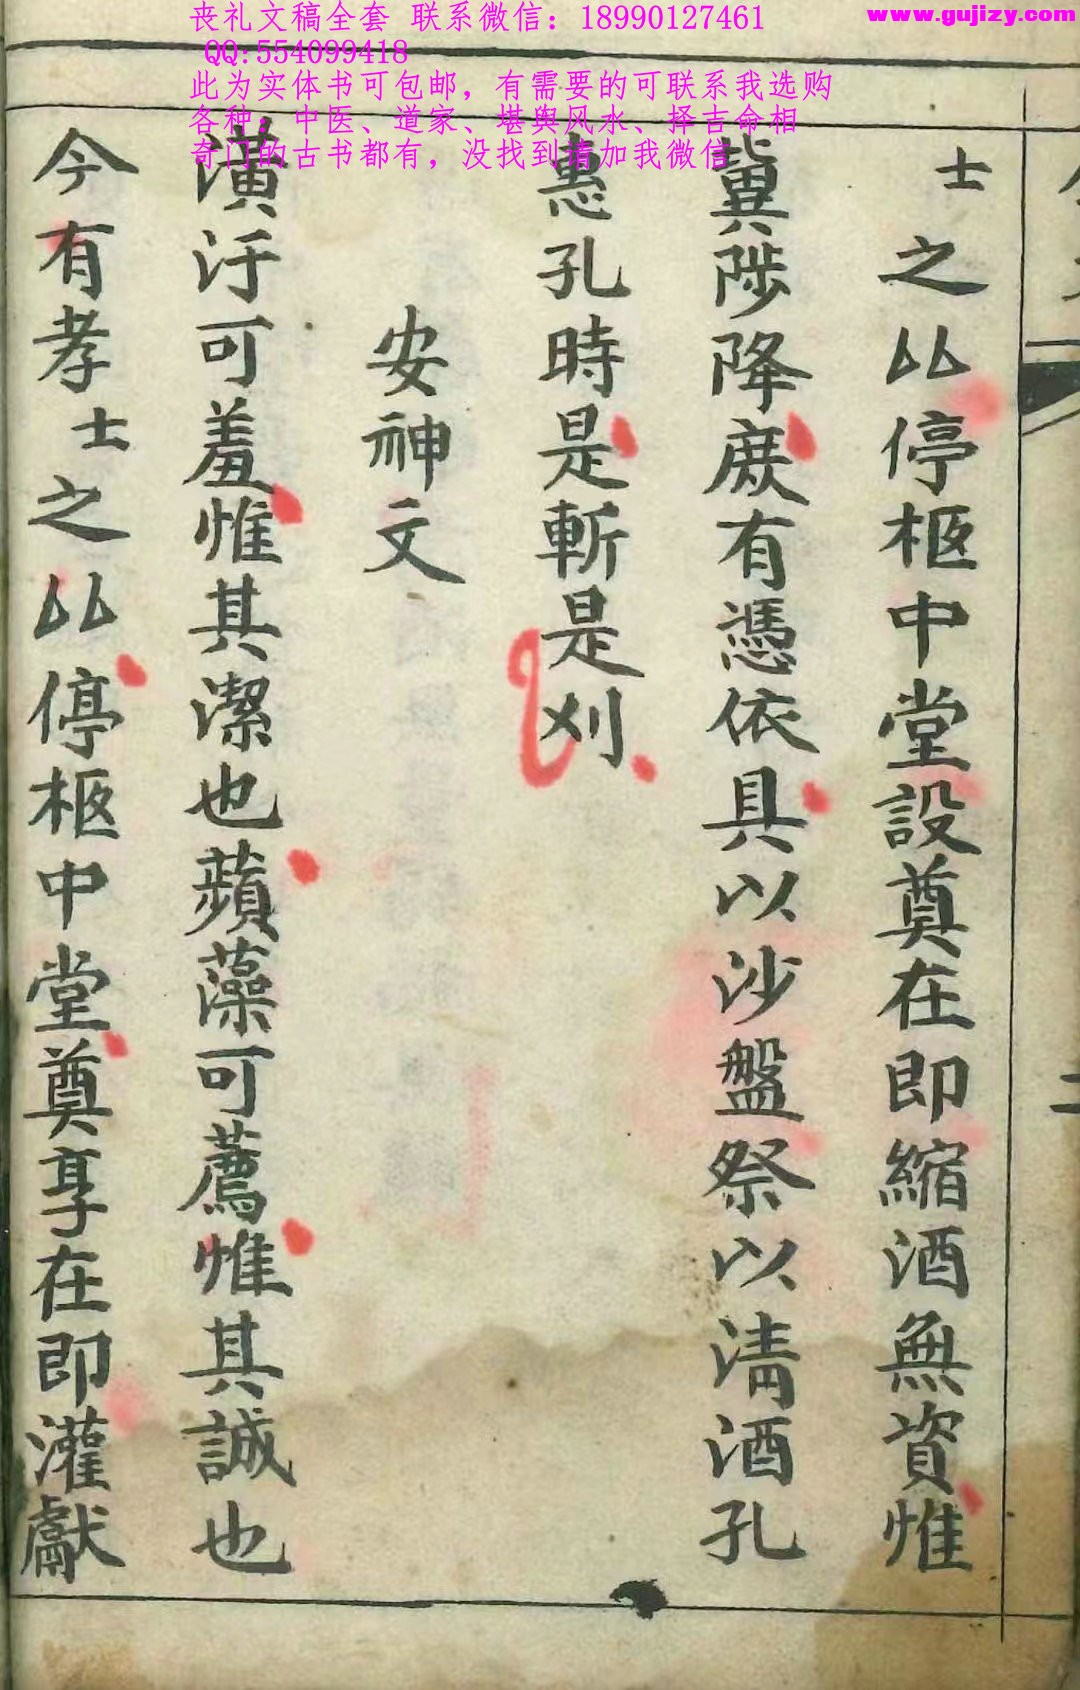 丧礼文稿全套 联系微信：18990127461
QQ:554099418
此为实体书可包邮，有需要的可联系我选购
各种：中医、道家、堪舆风水、择吉命相
奇门的古书都有，没找到请加我微信
www.gujizy.com
士之以停柩中堂設奠在即縮酒無資惟
冀陟降庻有憑依具以沙盤祭以清酒孔
惠孔時是斬是刈
安神文
潢汙可羞惟其潔也蘋藻可薦惟其誠也
今有孝士之以停柩中堂奠享在即灌獻